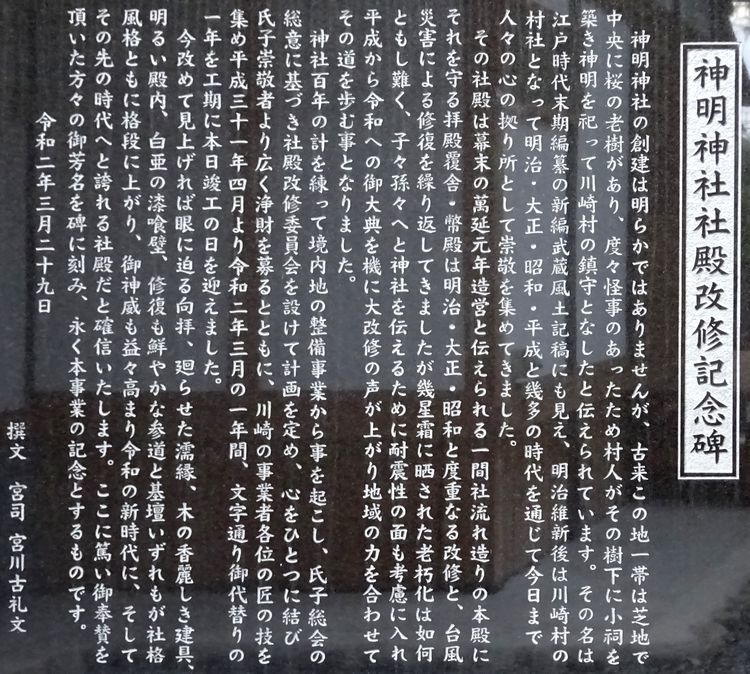 神明神社社殿改修記念碑
神明神社の創建は明らかではありませんが、古来この地一帯は芝地で
中央に桜の老樹があり、度々怪事のあったため村人がその樹下に小祠を
築き神明を祀って川崎村の鎮守となしたと伝えられています。その名は
江戸時代末期編纂の新編武蔵風土記稿にも見え、明治維新後は川崎村の
村社となって明治・大正・昭和・平成と幾多の時代を通じて今日まで
人々の心の拠り所として崇敬を集めてきました。
その社殿は幕末の萬延元年造営と伝えられる一間社流れ造りの本殿に
それを守る拝殿覆舎・幣殿は明治・大正・昭和と度重なる改修と、台風
災害による修復を繰り返してきましたが幾星霜に晒された老朽化は如何
ともし難く、子々孫々へと神社を伝えるために耐震性の面も考慮に入れ
平成から令和への御大典を機に大改修の声が上がり地域の力を合わせて
その道を歩む事となりました。
神社百年の計を練って境内地の整備事業から事を起こし、氏子総会の
総意に基づき社殿改修委員会を設けて計画を定め、心をひとつに結び
氏子崇敬者より広く浄財を募るとともに、川崎の事業者各位の匠の技を
集め平成三十一年四月より令和二年三月の一年間、文字通り御代替りの
一年を工期に本日竣工の日を迎えました。
今改めて見上げれば眼に迫る向拝、廻らせた濡縁、木の香麗しき建具、
明るい殿内、白亜の漆喰壁、修復も鮮やかな参道と基壇いずれもが社格
風格ともに格段に上がり、御神威も益々高まり令和の新時代に、そして
その先の時代へと誇れる社殿だと確信いたします。ここに篤い御奉賛を
頂いた方々の御芳名を碑に刻み、永く本事業の記念とするものです。
令和二年三月二十九日
撰文 宮司 宮川古礼文